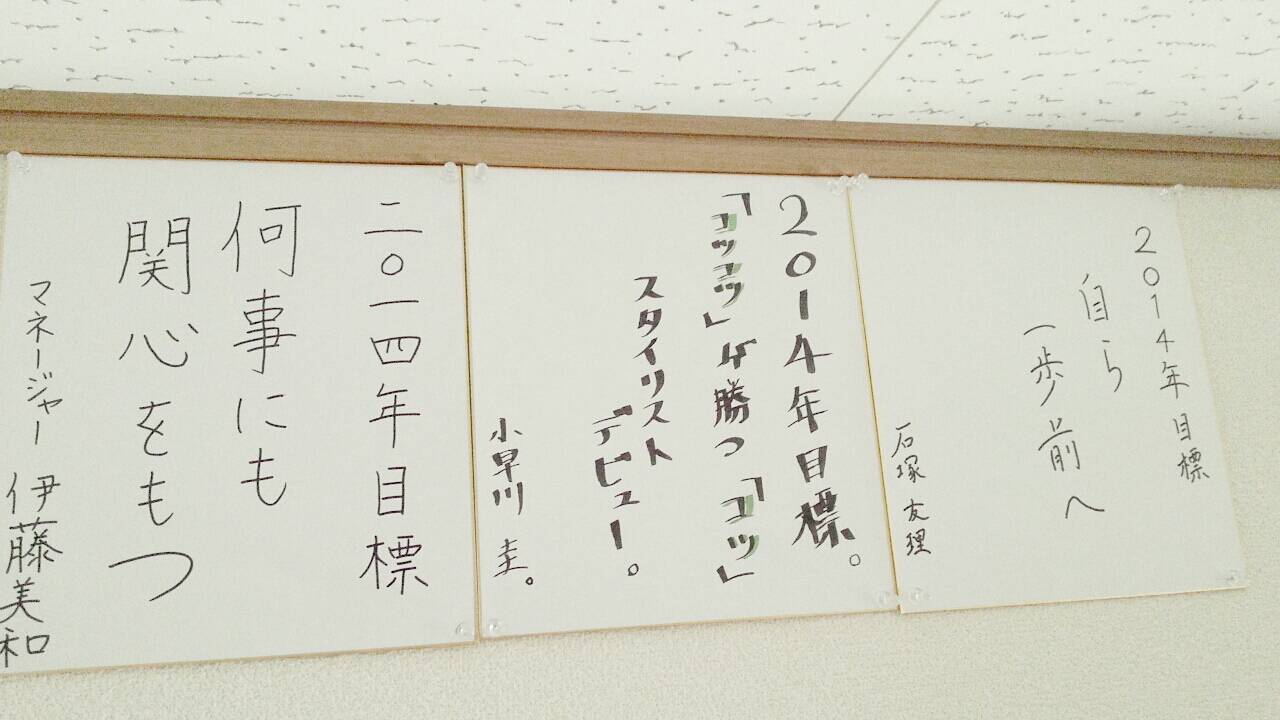 2014年目標
自ら
一歩前へ
石塚友理
2014年目標。
「コツコツ」が勝つ「コツ」
スタイリスト
デビュー。
小早川 圭。
二〇一四年目標
何事にも
関心をもつ
マネージャー 伊藤美和